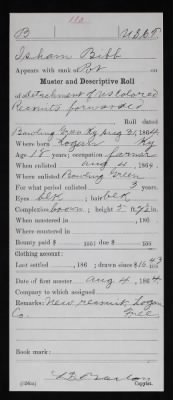 B U.S.C.T.
Isham Bibb
Appears with rank of Pvt on
Muster and Descriptive Roll
of detachment of US colored
Recruits forwarded
Roll dated
Bowling Green Ky Aug 21, 1864.
Where born Logan Ky
Age 18 years; occupation farmer
When enlisted Aug 4, 1864.
Where enlisted Bowling Green
For what period enlisted 3 years.
Eyes blk; hair blk
Complexion brown; height 5 ft. 2 in.
When mustered in , 186 .
Where mustered in
Bounty paid $ 100; due $ 100
Clothing account:
Last settled , 186 ; drawn since $ 100
Date of first muster Aug 4, 1864.
Company to which assigned
Remarks: New recruit Logan
Co. Free
Book mark:
Copyist.